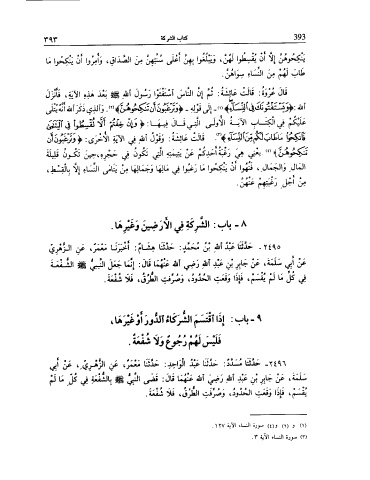 393 كتاب الشركة ٣٩٣
يَنْكِحُوهُنَّ إِلَّا أَنْ يُقْسِطُوا لَهُنَّ، وَيَبْلُغُوا بِهِنَّ أَعْلَى سُنَّتِهِنَّ مِنَ الصَّدَاقِ، وَأُمِرُوا أَنْ يَنْكِحُوا مَا
طَابَ لَهُمْ مِنَ النِّسَاءِ سِوَاهُنَّ.
قَالَ عُرْوَةُ: قَالَتْ عَائِشَةُ: ثُمَّ إِنَّ النَّاسَ اسْتَفْتَوْا رَسُولَ اللهِ ﷺ بَعْدَ هَذِهِ الآيَةِ، فَأَنْزَلَ
اللهُ: ﴿وَيَسْتَفْتُونَكَ فِي النِّسَاءِ﴾(١) - إِلَى قَوْلِهِ - ﴿وَتَرْغَبُونَ أَنْ تَنْكِحُوهُنَّ﴾(٢). وَالَّذِي ذَكَرَ اللهُ أَنَّهُ يُتْلَى
عَلَيْكُمْ فِي الْكِتَابِ الآيَةُ الأُولَى الَّتِي قَالَ فِيهَا: ﴿وَإِنْ خِفْتُمْ أَلَّا تُقْسِطُوا فِي الْيَتَامَى
فَانْكِحُوا مَا طَابَ لَكُمْ مِنَ النِّسَاءِ﴾(٣). قَالَتْ عَائِشَةُ: وَقَوْلُ اللهِ فِي الآيَةِ الأُخْرَى: ﴿وَتَرْغَبُونَ أَنْ
تَنْكِحُوهُنَّ﴾(٤) يَعْنِي هِيَ رَغْبَةُ أَحَدِكُمْ عَنْ يَتِيمَتِهِ الَّتِي تَكُونُ فِي حَجْرِهِ، حِينَ تَكُونُ قَلِيلَةَ
الْمَالِ وَالْجَمَالِ، فَنُهُوا أَنْ يَنْكِحُوا مَا رَغِبُوا فِي مَالِهَا وَجَمَالِهَا مِنْ يَتَامَى النِّسَاءِ إِلَّا بِالْقِسْطِ،
مِنْ أَجْلِ رَغْبَتِهِمْ عَنْهُنَّ.
٨ - باب: الشَّرِكَةِ فِي الأَرَضِينَ وَغَيْرِهَا.
٢٤٩٥ - حَدَّثَنَا عَبْدُ اللهِ بْنُ مُحَمَّدٍ: حَدَّثَنَا هِشَامٌ: أَخْبَرَنَا مَعْمَرٌ، عَنِ الزُّهْرِيِّ
عَنْ أَبِي سَلَمَةَ، عَنْ جَابِرِ بْنِ عَبْدِ اللهِ رَضِيَ اللهُ عَنْهُمَا قَالَ: إِنَّمَا جَعَلَ النَّبِيُّ ﷺ الشُّفْعَةَ
فِي كُلِّ مَا لَمْ يُقْسَمْ، فَإِذَا وَقَعَتِ الْحُدُودُ، وَصُرِّفَتِ الطُّرُقُ، فَلَا شُفْعَةَ.
٩ - باب: إِذَا اقْتَسَمَ الشُّرَكَاءُ الدُّورَ أَوْ غَيْرَهَا،
فَلَيْسَ لَهُمْ رُجُوعٌ وَلَا شُفْعَةٌ.
٢٤٩٦ - حَدَّثَنَا مُسَدَّدٌ: حَدَّثَنَا عَبْدُ الْوَاحِدِ: حَدَّثَنَا مَعْمَرٌ، عَنِ الزُّهْرِيِّ، عَنْ أَبِي
سَلَمَةَ، عَنْ جَابِرِ بْنِ عَبْدِ اللهِ رَضِيَ اللهُ عَنْهُمَا قَالَ: قَضَى النَّبِيُّ ﷺ بِالشُّفْعَةِ فِي كُلِّ مَا لَمْ
يُقْسَمْ، فَإِذَا وَقَعَتِ الْحُدُودُ، وَصُرِّفَتِ الطُّرُقُ، فَلَا شُفْعَةَ.
(١) و (٢) و(٤) سورة النساء الآية ١٢٧.
(٣) سورة النساء الآية ٣.